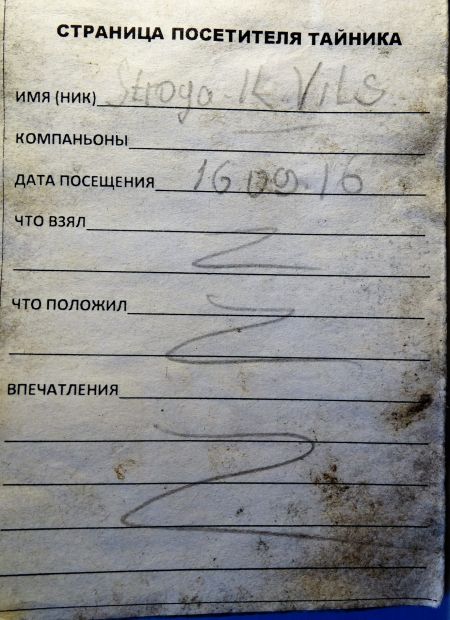 СТРАНИЦА ПОСЕТИТЕЛЯ ТАЙНИКА
ИМЯ (НИК) Stroga-K.Vils
КОМПАНЬОНЫ
ДАТА ПОСЕЩЕНИЯ 16.09.16
ЧТО ВЗЯЛ
ЧТО ПОЛОЖИЛ
ВПЕЧАТЛЕНИЯ